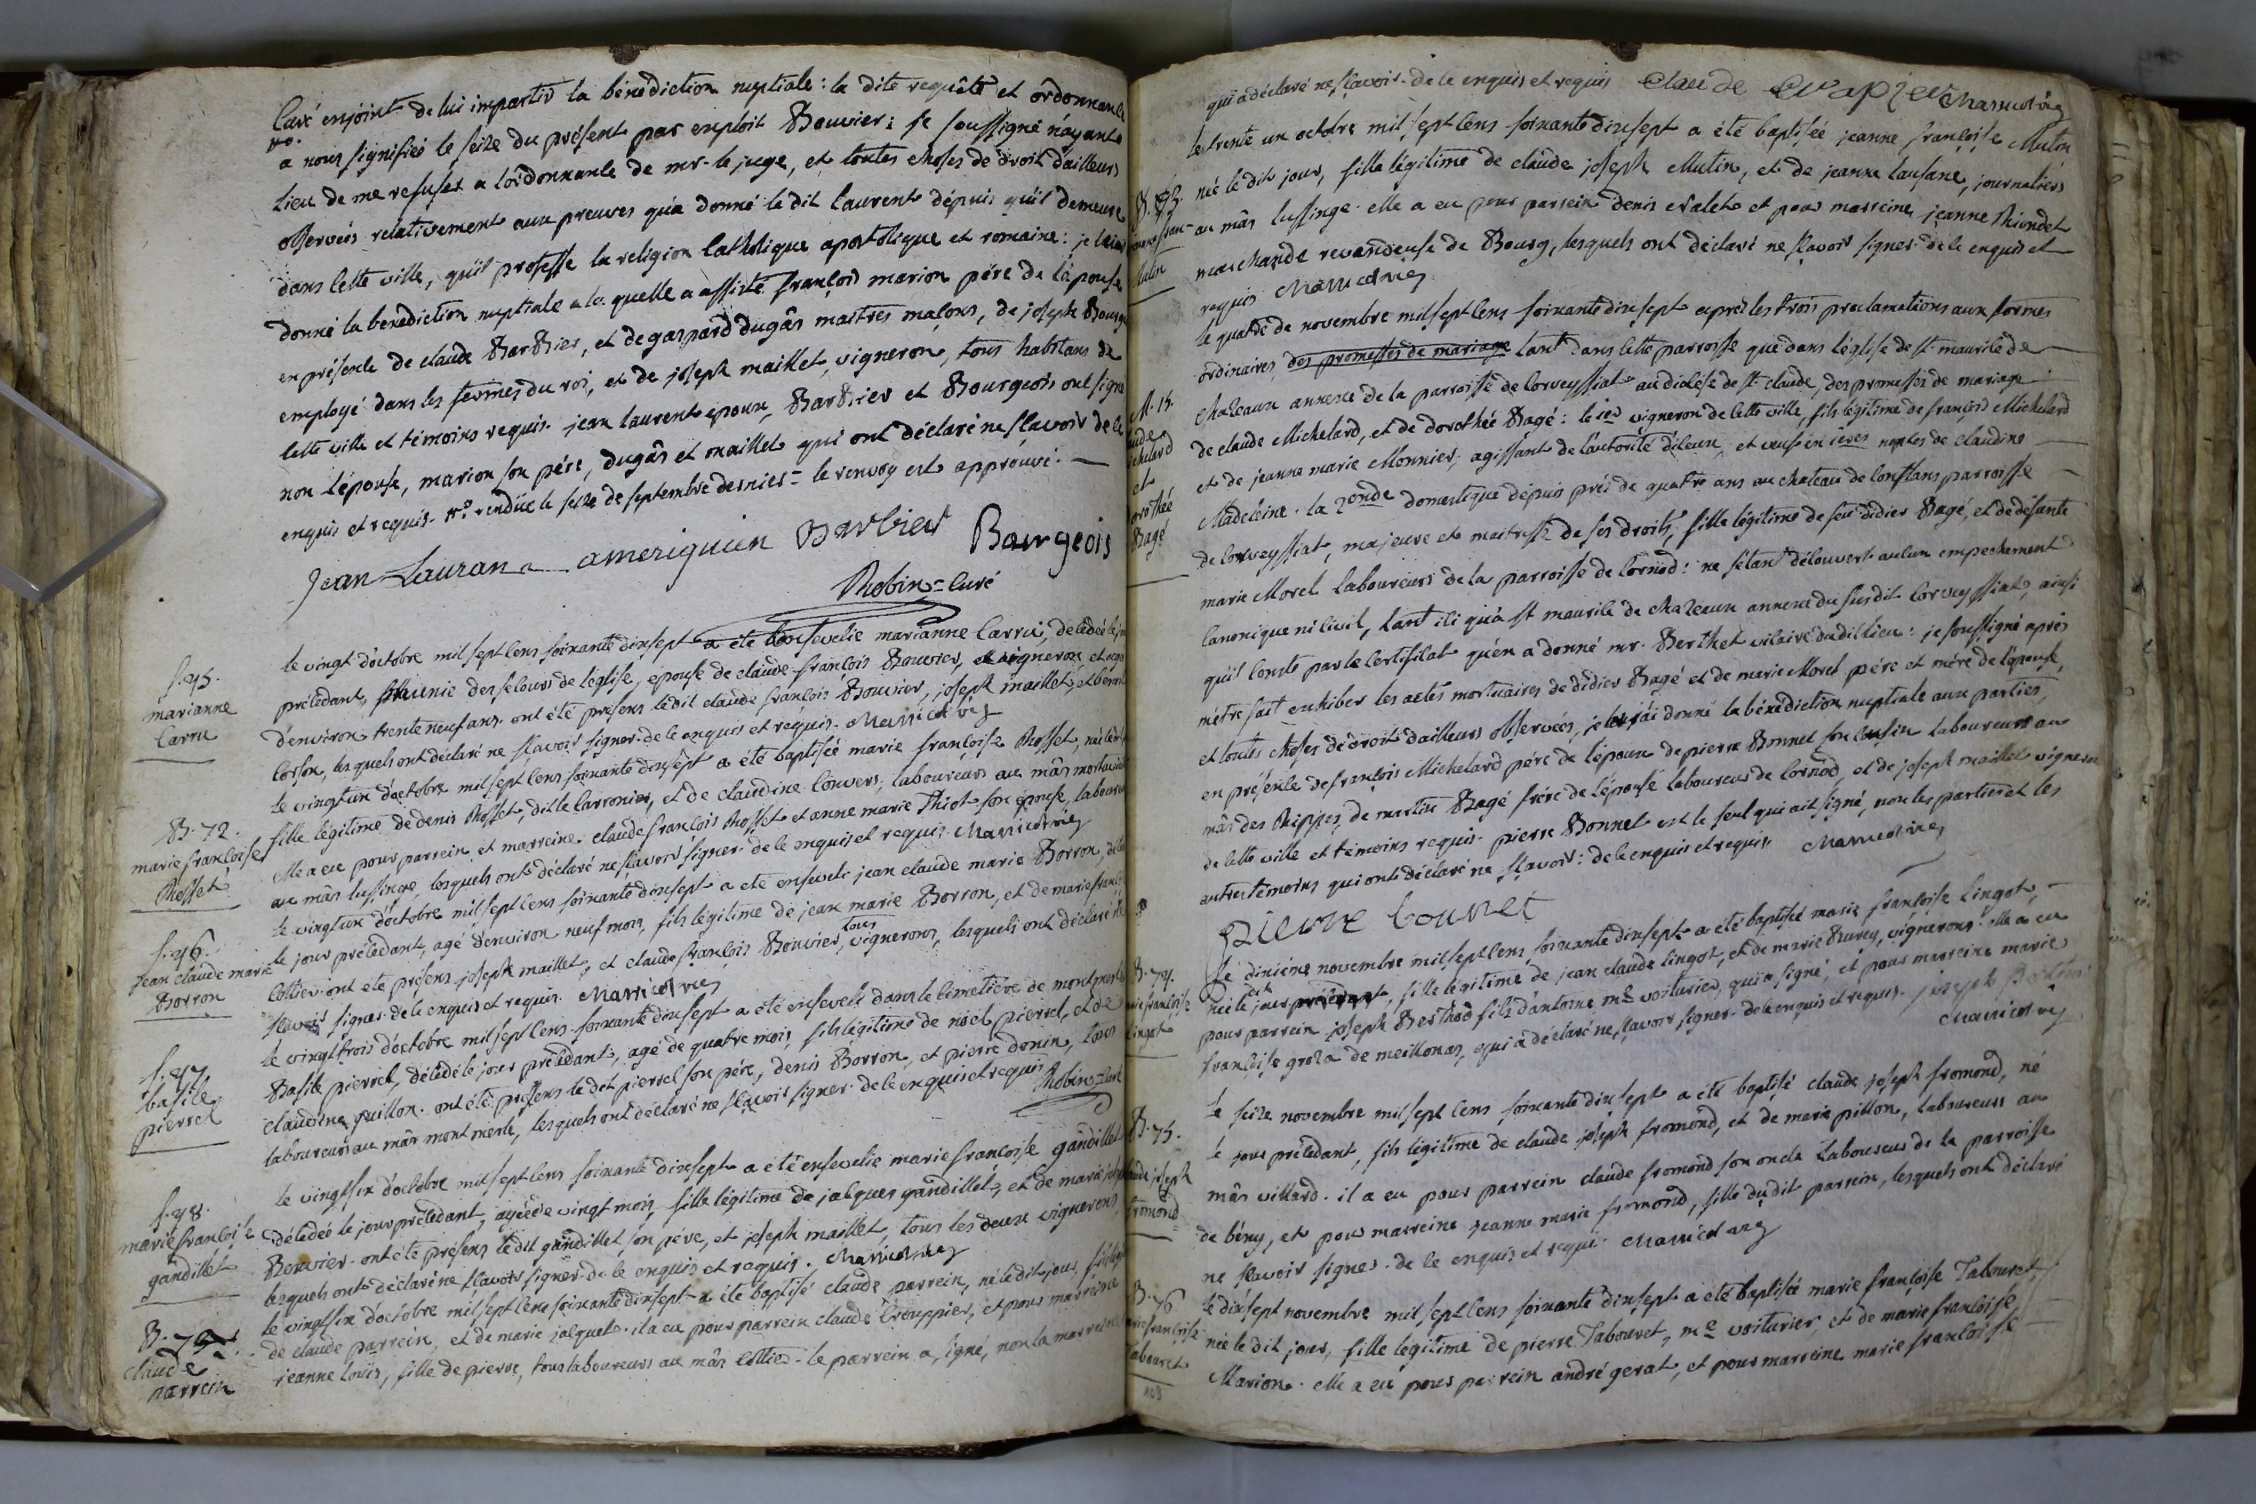 Curé enjoint de lui impartir la bénédiction nuptiale : la dite requête et ordonnance
a nous signifiée le seize du présent par exploit Bouvier ; je soussigné n'ayant
lieu de me refuser a l'ordonnance de mr. le juge, et toutes choses de droit d'ailleurs
observées relativement aux preuves qu'a donné le dit laurent dépuis qu'il demeure
dans cette ville, qu'il professe la religion Catholique apostolique et romaine : je
donné la bénédiction nuptiale a la quelle a assisté françois marion pére de l'épouse
en présence de claude Barbier, et de gaspard dugâs maitres maçons, de joseph Bourg
employé dans les fermes du roi, et de joseph maillet, vigneron, tous habitans de
cette ville et témoins requis. jean laurent epoux, Barbier et Bourgeois ont signé
non l'épouse, marion son pére, dugâs et maillet qui ont déclaré ne sçavoir de ce
enquis et requis. rendüe le seize de septembre dernier = le renvoy est approuvé.
Jean Lauran ameriquien Barbier Bourgeois
Robin = Curé
f. 45.
marianne
Carru
le vingt d'octobre mil sept cens soixante dixsept a été ensevelie marianne Carru, décédée le
précédant, munie des secours de l'église, épouse de claude françois Bouvier, vigneron, et agée
d'environ trente neuf ans. ont été présens le dit claude françois Bouvier, joseph maillet, et benoit
Corson, lesquels ont déclaré ne sçavoir signer. de ce enquis et requis.
B. 72.
marie françoise
Rosset
le vingt un d'octobre mil sept cens soixante dixsept a été baptisée marie françoise Rosset, née
fille légitime de denis Rosset, dit le Carronier, et de claudine Convers, laboureurs au mâs
elle a eu pour parrein et marreine claude françois Rosset et anne marie Thiot son épouse, laboureurs
au mâs lussinge, lesquels ont déclaré ne sçavoir signer. de ce enquis et requis.
f. 46.
jean claude marie
Borron
le vingt un d'octobre mil sept cens soixante dixsept a été enseveli jean claude marie Borron,
le jour précédant, agé d'environ neuf mois, fils légitime de jean marie Borron, et de marie
Cottier. ont été présens joseph maillet, et claude françois Bouvier, tous vignerons, lesquels ont déclaré ne
sçavoir signer. de ce enquis et requis.
f. 47.
basile
pierrel
le vingt trois d'octobre mil sept cens soixante dixsept a été enseveli dans le cimetiére de montmerle
Basile pierrel, décédé le jour précédant, agé de quatre mois, fils légitime de noël pierrel, et de
claudine guillon. ont été présens le dit pierrel son pére, denis Borron, et pierre donin, tous
laboureurs au mâs montmerle, lesquels ont déclaré ne sçavoir signer. de ce enquis et requis. Robin = Curé
f. 48.
marie françoise
gandillet
le vingt six d'octobre mil sept cens soixante dixsept a été ensevelie marie françoise gandillet
décédée le jour précédant, agée de vingt mois, fille légitime de jacques gandillet, et de marie
Bouvier. ont été présens le dit gandillet son pére, et joseph maillet, tous les deux vignerons
lesquels ont déclaré ne sçavoir signer. de ce enquis et requis.
B. 72.
claude
parrein
le vingt six d'octobre mil sept cens soixante dixsept a été baptisé claude parrein, né le dit jour, fils
de claude parrein, et de marie jacquet. il a eu pour parrein claude Crouppier, et pour marreine
jeanne loüis, fille de pierre, tous laboureurs au mâs Cottier. le parrein a signé, non la marreine
qui a déclaré ne sçavoir. de ce enquis et requis
B. 73.
le trente un octobre mil sept cens soixante dixsept a été baptisée jeanne françoise Mutin
née le dit jour, fille légitime de claude joseph Mutin, et de jeanne lausane, journaliérs
au mâs lussinge. elle a eu pour parrein denis evalet et pour marreine jeanne Riondet
marchande revendeuse de Bourg, lesquels ont déclaré ne sçavoir signer. de ce enquis et
requis
M. 15.
et
dorothée
Bagé
le quatre de novembre mil sept cens soixante dixsept aprés les trois proclamations aux formes
ordinaires des promesses de mariage tant dans cette parroisse que dans l'église de st. maurice de
chazeaux annexe de la parroisse de Corveyssiat au diocése de st. claude, des promesses de mariage
de claude Michelard, et de dorothée Bagé : le 1er vigneron de cette ville, fils légitime de françois Michelard
et de jeanne marie Monnier, agissant de l'autorité d'iceux, et veuf en 1eres noces de claudine
Madeleine. la 2onde domestique dépuis prés de quatre ans au chateau de Conflans parroisse
de Corveyssiat, majeure et maitresse de ses droits, fille légitime de feu didier Bagé, et de défunte
marie Morel laboureurs de la parroisse de Cornod : ne s'étant découvert aucun empechement
Canonique ni civil, tant ici qu'à st. maurice de chazeaux annexe du susdit Corveyssiat, ainsi
qu'il conste par le certificat qu'en a donné mr. Berthet vicaire du dit lieu : je soussigné aprés
m'étre fait exhiber les actes mortuaires de didier Bagé et de marie Morel pére et mére de l'épouse,
et toutes choses de droit d'ailleurs observées, j'ai donné la bénédiction nuptiale aux parties,
en présence de françois Michelard pére de l'époux, de pierre Bonnet son cousin laboureurs au
mâs des Rippes, de martin Bagé frére de l'épouse laboureur de Cornod, et de joseph maillet vigneron
de cette ville et témoins requis. pierre Bonnet est le seul qui ait signé, non les parties et les
autres témoins qui ont déclaré ne sçavoir : de ce enquis et requis.
pierre bonnet
B. 74.
marie françoise
Lingot
le dixiéme novembre mil sept cens soixante dixsept a été baptisée marie françoise Lingot,
née le dit jour précédant, fille légitime de jean claude lingot, et de marie Burey, vignerons. elle a eu
pour parrein joseph Berthod fils d'antoine me. voiturier, qui a signé, et pour marreine marie
françoise groza de meillonas, qui a déclaré ne sçavoir signer. de ce enquis et requis.
B. 75.
claude joseph
fromond
le seize novembre mil sept cens soixante dixsept a été baptisé claude joseph fromond, né
le jour précédant, fils légitime de claude joseph fromond, et de marie pillon, laboureurs au
mâs villard. il a eu pour parrein claude fromond son oncle laboureur de la parroisse
de bény, et pour marreine jeanne marie fromond, fille du dit parrein, lesquels ont déclaré
ne sçavoir signer. de ce enquis et requis
B. 76
marie françoise
Tabouret
le dixsept novembre mil sept cens soixante dixsept a été baptisée marie françoise Tabouret,
née le dit jour, fille légitime de pierre Tabouret, me. voiturier, et de marie françoise
Marion. elle a eu pour parrein andré gerat, et pour marreine marie françoise